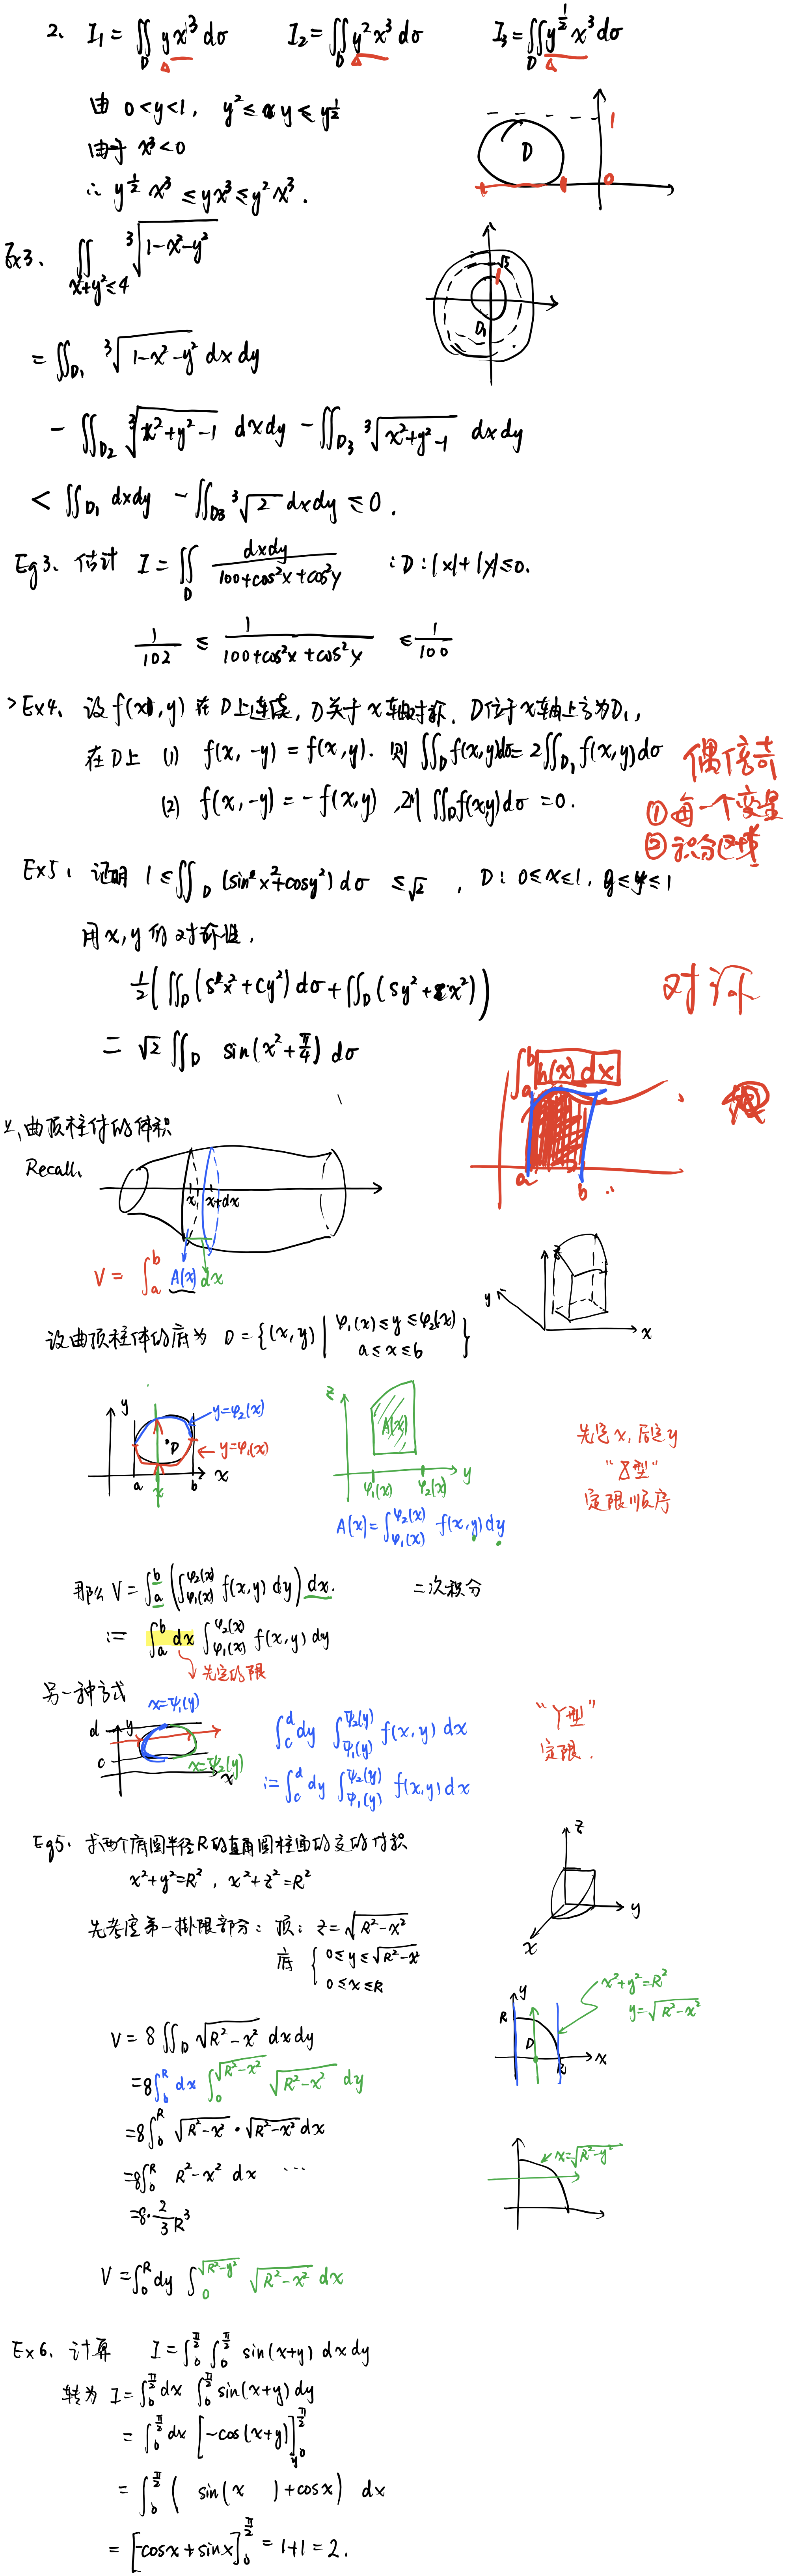 2、 I₁ = ∬_D yx³ dσ I₂ = ∬_D y²x³ dσ I₃ = ∬_D y^{1/2} x³ dσ
由 0<y<1, y² ≤ y ≤ y^{1/2}
由于 x³<0
∴ y^{1/2} x³ ≤ yx³ ≤ y²x³.
D 1 0
Ex3、 ∬_{x²+y²≤4} ∛(1-x²-y²)
√3 D₁
= ∬_{D₁} ∛(1-x²-y²) dxdy
- ∬_{D₂} ∛(x²+y²-1) dxdy - ∬_{D₃} ∛(x²+y²-1) dxdy
< ∬_{D₁} dxdy - ∬_{D₃} ∛2 dxdy ≤ 0.
Eg3、 估计 I = ∬_D dxdy/(100+cos²x+cos²y) : D: |x|+|y|≤0.
1/102 ≤ 1/(100+cos²x+cos²y) ≤ 1/100
>Ex4、 设 f(x,y) 在 D上连续, D关于 x轴对称. D位于x轴上方为D₁,
在D上 (1) f(x,-y) = f(x,y). 则 ∬_D f(x,y)dσ = 2∬_{D₁} f(x,y)dσ
(2) f(x,-y) = -f(x,y), 则 ∬_D f(x,y)dσ = 0.
偶倍奇
① 每一个变量
② 积分区域
Ex5、 证明 1 ≤ ∬_D (sin x²+cosy²) dσ ≤ √2 , D: 0≤x≤1, 0≤y≤1
用 x,y 的对称性,
½(∬_D (s x²+cy²) dσ + ∬_D (sy²+cx²))
= √2 ∬_D sin(x²+π/4) dσ
对称
∫_a^b h(x) dx
a b
2、曲顶柱体的体积
Recall、
x x+dx
V = ∫_a^b A(x) dx
z y x
设曲顶柱体的底为 D = {(x,y) | φ₁(x)≤y≤φ₂(x) a≤x≤b}
y y=φ₂(x) D y=φ₁(x) a x b x
z A(x) φ₁(x) φ₂(x) y
A(x) = ∫_{φ₁(x)}^{φ₂(x)} f(x,y) dy
先定x, 后定y
"X型"
定限顺序
那么 V = ∫_a^b (∫_{φ₁(x)}^{φ₂(x)} f(x,y) dy) dx. 二次积分
:= ∫_a^b dx ∫_{φ₁(x)}^{φ₂(x)} f(x,y) dy
先定的限
另一种方式
x=ψ₁(y) d y c x=ψ₂(y) x
∫_c^d dy ∫_{ψ₁(y)}^{ψ₂(y)} f(x,y) dx
:= ∫_c^d dy ∫_{ψ₁(y)}^{ψ₂(y)} f(x,y) dx
"Y型"
定限.
Eg5、 求两个底圆半径R的直角圆柱面的交的体积
x²+y²=R² , x²+z²=R²
先考虑第一卦限部分: 顶: z=√(R²-x²)
底 { 0≤y≤√(R²-x²)
0≤x≤R
z y x
V = 8∬_D √(R²-x²) dxdy
= 8∫_0^R dx ∫_0^{√(R²-x²)} √(R²-x²) dy
= 8∫_0^R √(R²-x²)·√(R²-x²) dx
= 8∫_0^R R²-x² dx ...
= 8·2/3 R³
x²+y²=R²
y=√(R²-x²)
y R D R x
x=√(R²-y²)
V = ∫_0^R dy ∫_0^{√(R²-y²)} √(R²-x²) dx
Ex6、 计算 I = ∫_0^{π/2} ∫_0^{π/2} sin(x+y) dxdy
转为 I = ∫_0^{π/2} dx ∫_0^{π/2} sin(x+y) dy
= ∫_0^{π/2} dx [-cos(x+y)]_{y=0}^{π/2}
= ∫_0^{π/2} ( sin(x )+cosx) dx
= [-cosx+sinx]_0^{π/2} = 1+1 = 2.